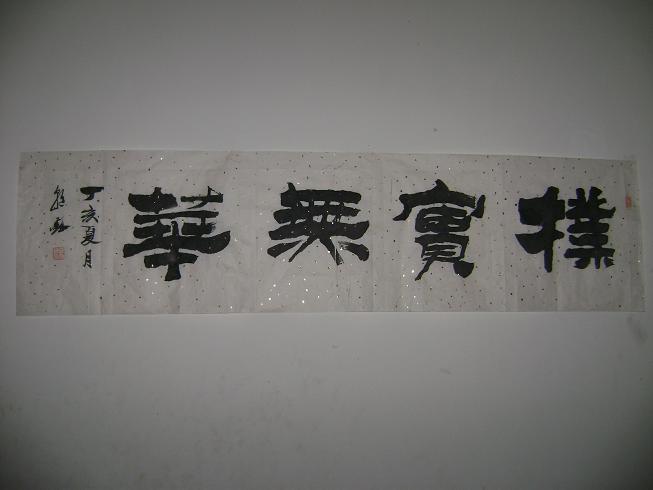 樸實無華
丁亥夏月